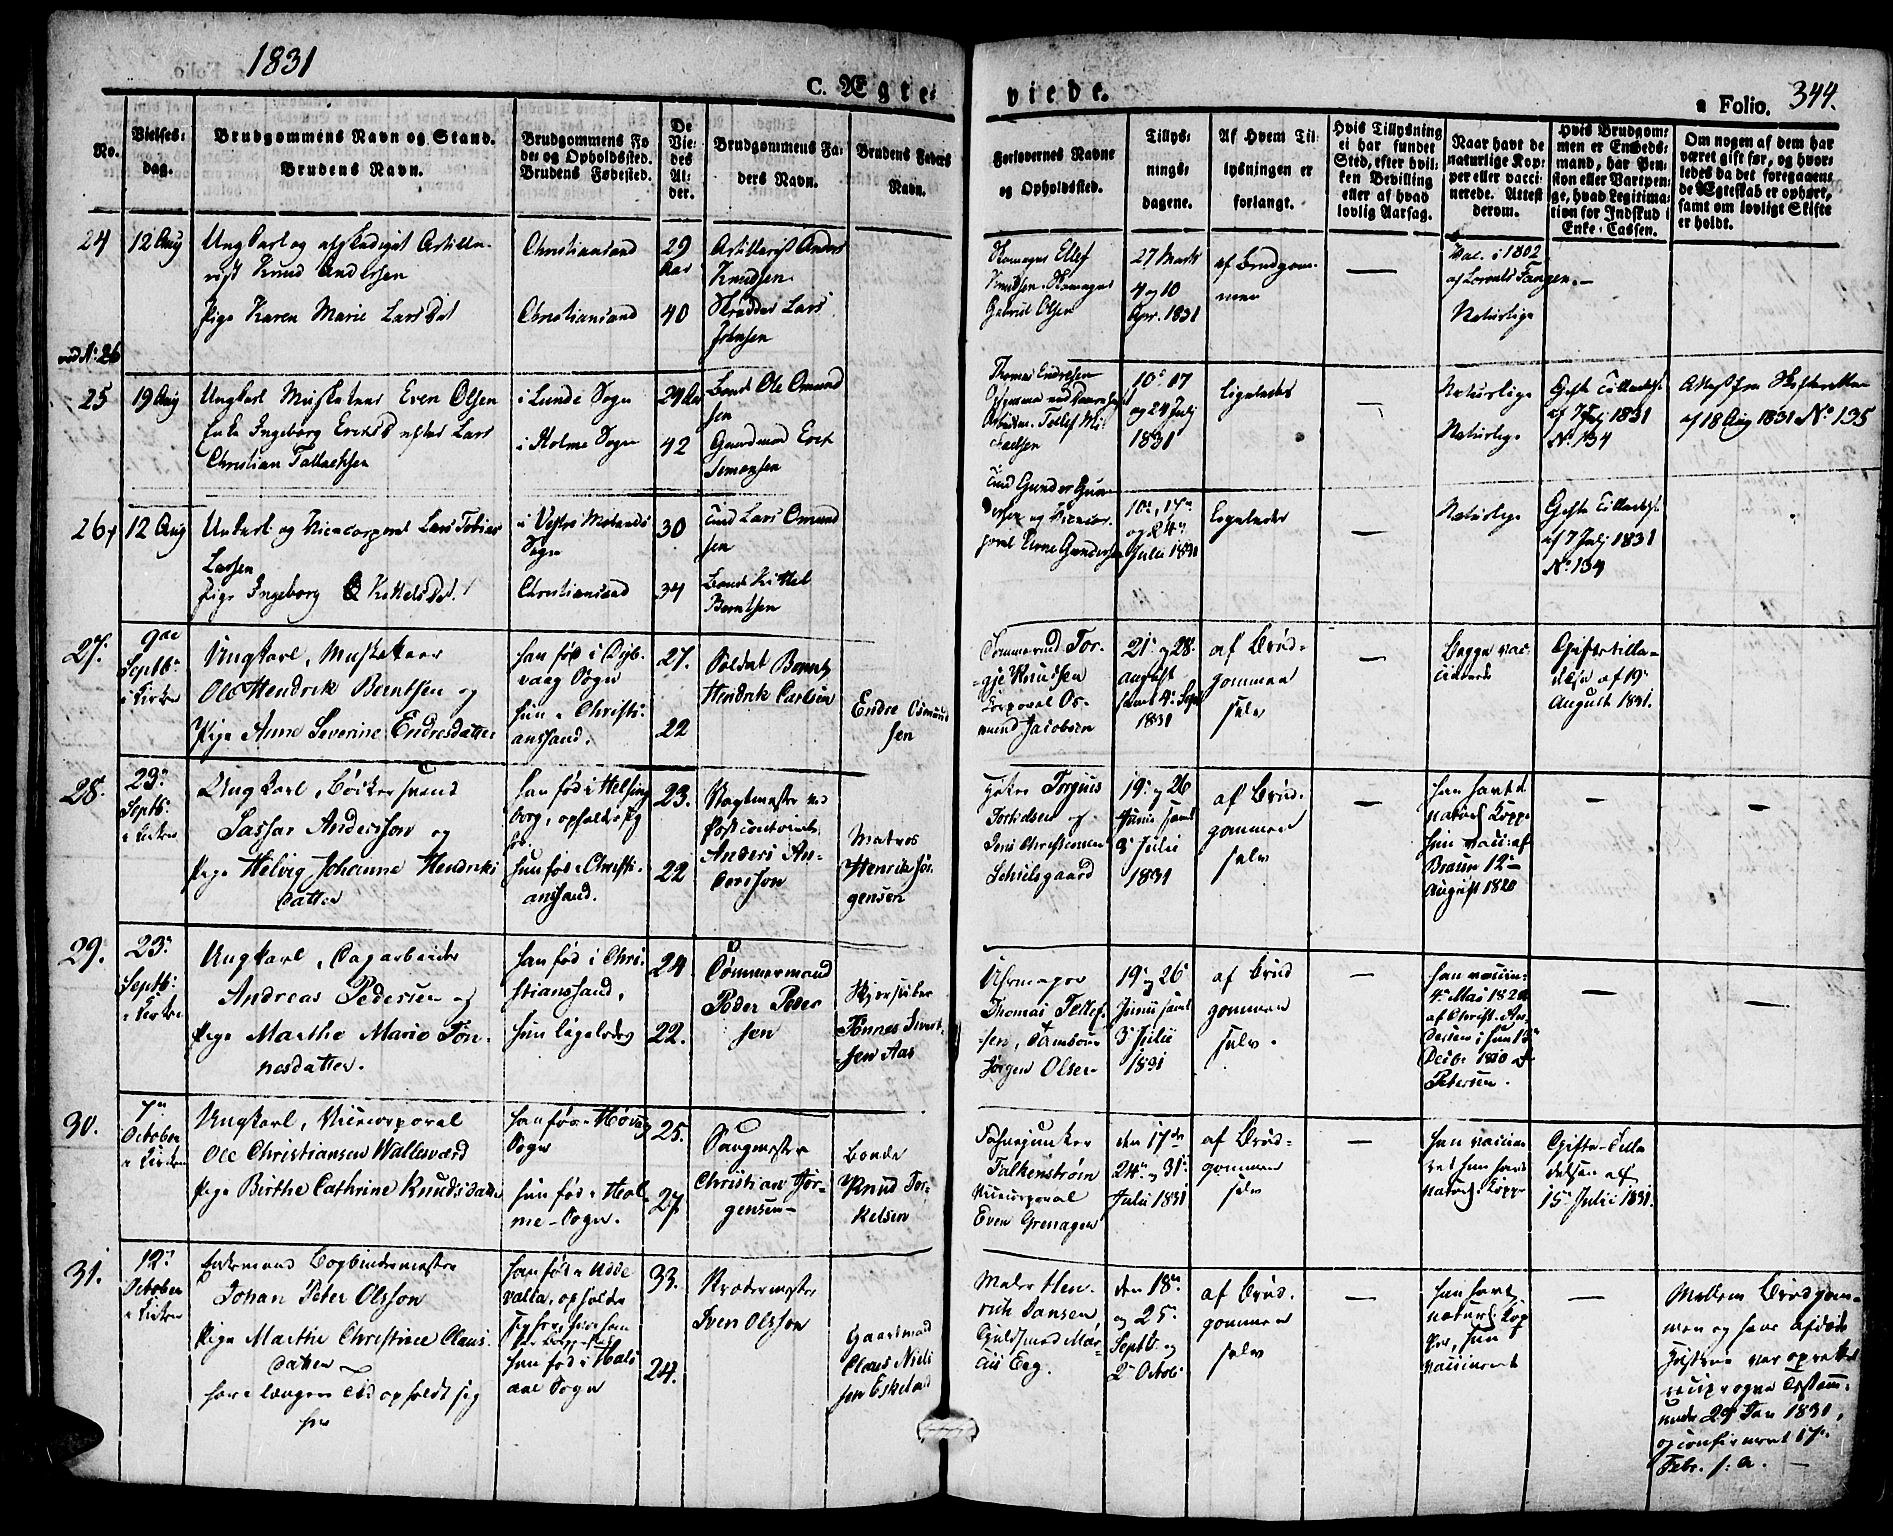 1831
C. Ægte-
viede.
a Folio. 344.
No.
Vielses-
dag.
Brudgommens Navn og Stand.
Brudens Navn.
Brudgommens Fø
de- og Opholdssted.
Brudens Fødested.
De
Vie-
des
Al-
der.
Brudgommens Fa-
ders Navn.
Brudens Faders
Navn.
Forlovernes Navne
og Opholdssted.
Tillys-
nings-
dagene.
Af Hvem Til-
lysningen er
forlangt.
Hvis Tillysning
ei har fundet
Sted, efter hvil-
ken Bevilling
eller af hvad
lovlig Aarsag.
Naar havt de
naturlige Kop-
per eller vacci-
nerede. Attest
derom.
Hvis Brudgom-
men er Embeds-
mand, har Pen-
sion eller Vartpen-
ge, hvad Legitima-
tion for Indskud i
Enke-Cassen.
Om nogen af dem har
været gift før, og hvor-
ledes da det foregaaen-
de Ægteskab er ophørt,
samt om lovligt Skifte
er holdt.
24
12 Aug
Ungkarl og afskediget Artille-
rist Knud Andersen
Pige Karen Marie Larsdat
Christiansand
Christiansand
29
Aar
40
Artillerist Anders
Knudsen
Skrædder Lars
Johnsen
Ellef
Knudsen
Gabriel Olsen
27 Marts
4 og 10
Apr. 1831
af Brudgom-
men
—
Vac. i 1802
Naturlige
—
ved No 26
25
19 Aug
Ungkarl Musketeer Even Olsen
Enke Ingeborg Ericksd efter Lars
Christian Tallachsen
i Lunde Sogn
i Holme Sogn
29 Aar
42
Bonde Ole Omund
sen
Gundmod Erik
Simonsen
Thomas Endresen
Tellef Mi-
chaelsen
10 17
og 24 July
1831
Ligeledes
—
Naturlige
Naturlige
Gifte Tilladelse
af 7 July 1831
No 134
Attest fra Skifteretten
af 18 Aug 1831 No 135
26
12 Aug
Unkarl og Vicecorporal Lars Tobias
Larsen
Pige Ingeborg Kittelsdat.
i Vestre Molands
Sogn
Christiansand
30
34
Lars Omund
sen
Bonde Kittel
Berntsen
Gunder Gun-
dersen og Vicecor-
poral Gundersen
10, 17
og 24
Julii 1831
Ligeledes
—
Naturlige
Gifte Tilladelse
af 7 July 1831
No 134
27.
9de
Septbr
i Kirken
Ungkarl, Musketeer
Ole Hendrik Berntsen og
Pige Anne Severine Endresdatter
han fød i Osjb-
vaag Sogn
hun i Christi-
ansand.
27.
22
Soldat Bernt
Hendrik Carlsen
Endre Osmund
sen
Tømmermd Tor-
gje Knudsen
Corporal Os-
mund Jacobsen
21 og 28
August
samt 4 Sept
1831
af Brud-
gommen
selv
—
Begge vac-
cinerede
Giftetilla-
delse af 19
August 1831.
28.
23
Septb:
i Kirken
Ungkarl, Bødkersvend
Andersson og
Pige Helvig Johanne Hendriks
datter
han fød i Helsing
borg, opholdt sig
her
hun fød i Christi-
ansand.
23.
22
Vagtmester ved
Anders An-
dersson
Matros
Henrik Jør-
gensen
Torjuus
Torkildsen og
Jens Christensen
Schielsgaard
19 og 26
Junii samt
3 Julii
1831
af Brud-
gommen
selv
—
han havt d
naturl. Kopp-
hun vacc: af
Braun 12
August 1820
—
—
29.
23
Septb:
i Kirken
Ungkarl, Dagarbeider
Andreas Pedersen og
Pige Marthe Marie Tøn-
nesdatter.
han fød i Chri-
stianssand,
hun ligeledes
24
22.
Tømmermand
Peder Peder
sen
Tønnes Sivert-
sen Aas
Uhrmager
Thomas Tellef-
sen, Tambour
Jørgen Olsen
19 og 26
Junii samt
3 Julii
1831
af Brud
gommen
selv.
—
han vaccin:
4 Mai 1820
af Christ. An-
dersen, hun 15
1810 af
Petersen.
—
—
30.
7
October
i Kirken
Ungkarl, Vicecorporal
Ole Christiansen Walleværd
Pige Birthe Cathrine Knudsdatter
han fød i Høvåg
Sogn
hun fød i Hol-
me-Sogn.
25.
27.
Christian Jør-
gensen
Bonde
Knud Ter-
kelsen
Fahnejunker
Falkenstrøm
Vicecorporal
Even Grenagen
den 17de
24 og 31
Julii 1831
af Brud-
gommen
selv
—
han vaccine-
ret hun havt
naturl. Kopp
Gifte-Tilla
delsen af
15 Julii 1831.
31.
12
October
i Kirken
Enkemand Bogbindermester
Johan Peter Olsson
Pige Marthe Christine Claus-
datter
har i længere Tid opholdt sig
her
han fød i Udde
valla, opholder
sig her, her som
hun fød i Hals
aae Sogn
33.
24.
Sven Olsson
Gaardmand
Claus Niels
sen Eskeland
Maler Hen-
rich Jansen
Guldsmed Mar-
cus Eeg.
den 18
og 25
Septb. og
2 Octob:
af Brud-
gommen
selv
—
han havt
naturl. Kop
per, hun
vaccineret
—
Mellem Brudgom-
men og hans afdøde
Hustrue var oprettet
reciprogue Testam-
under 29 Jan 1831,
og confirmeret 17
Febr. s: a.